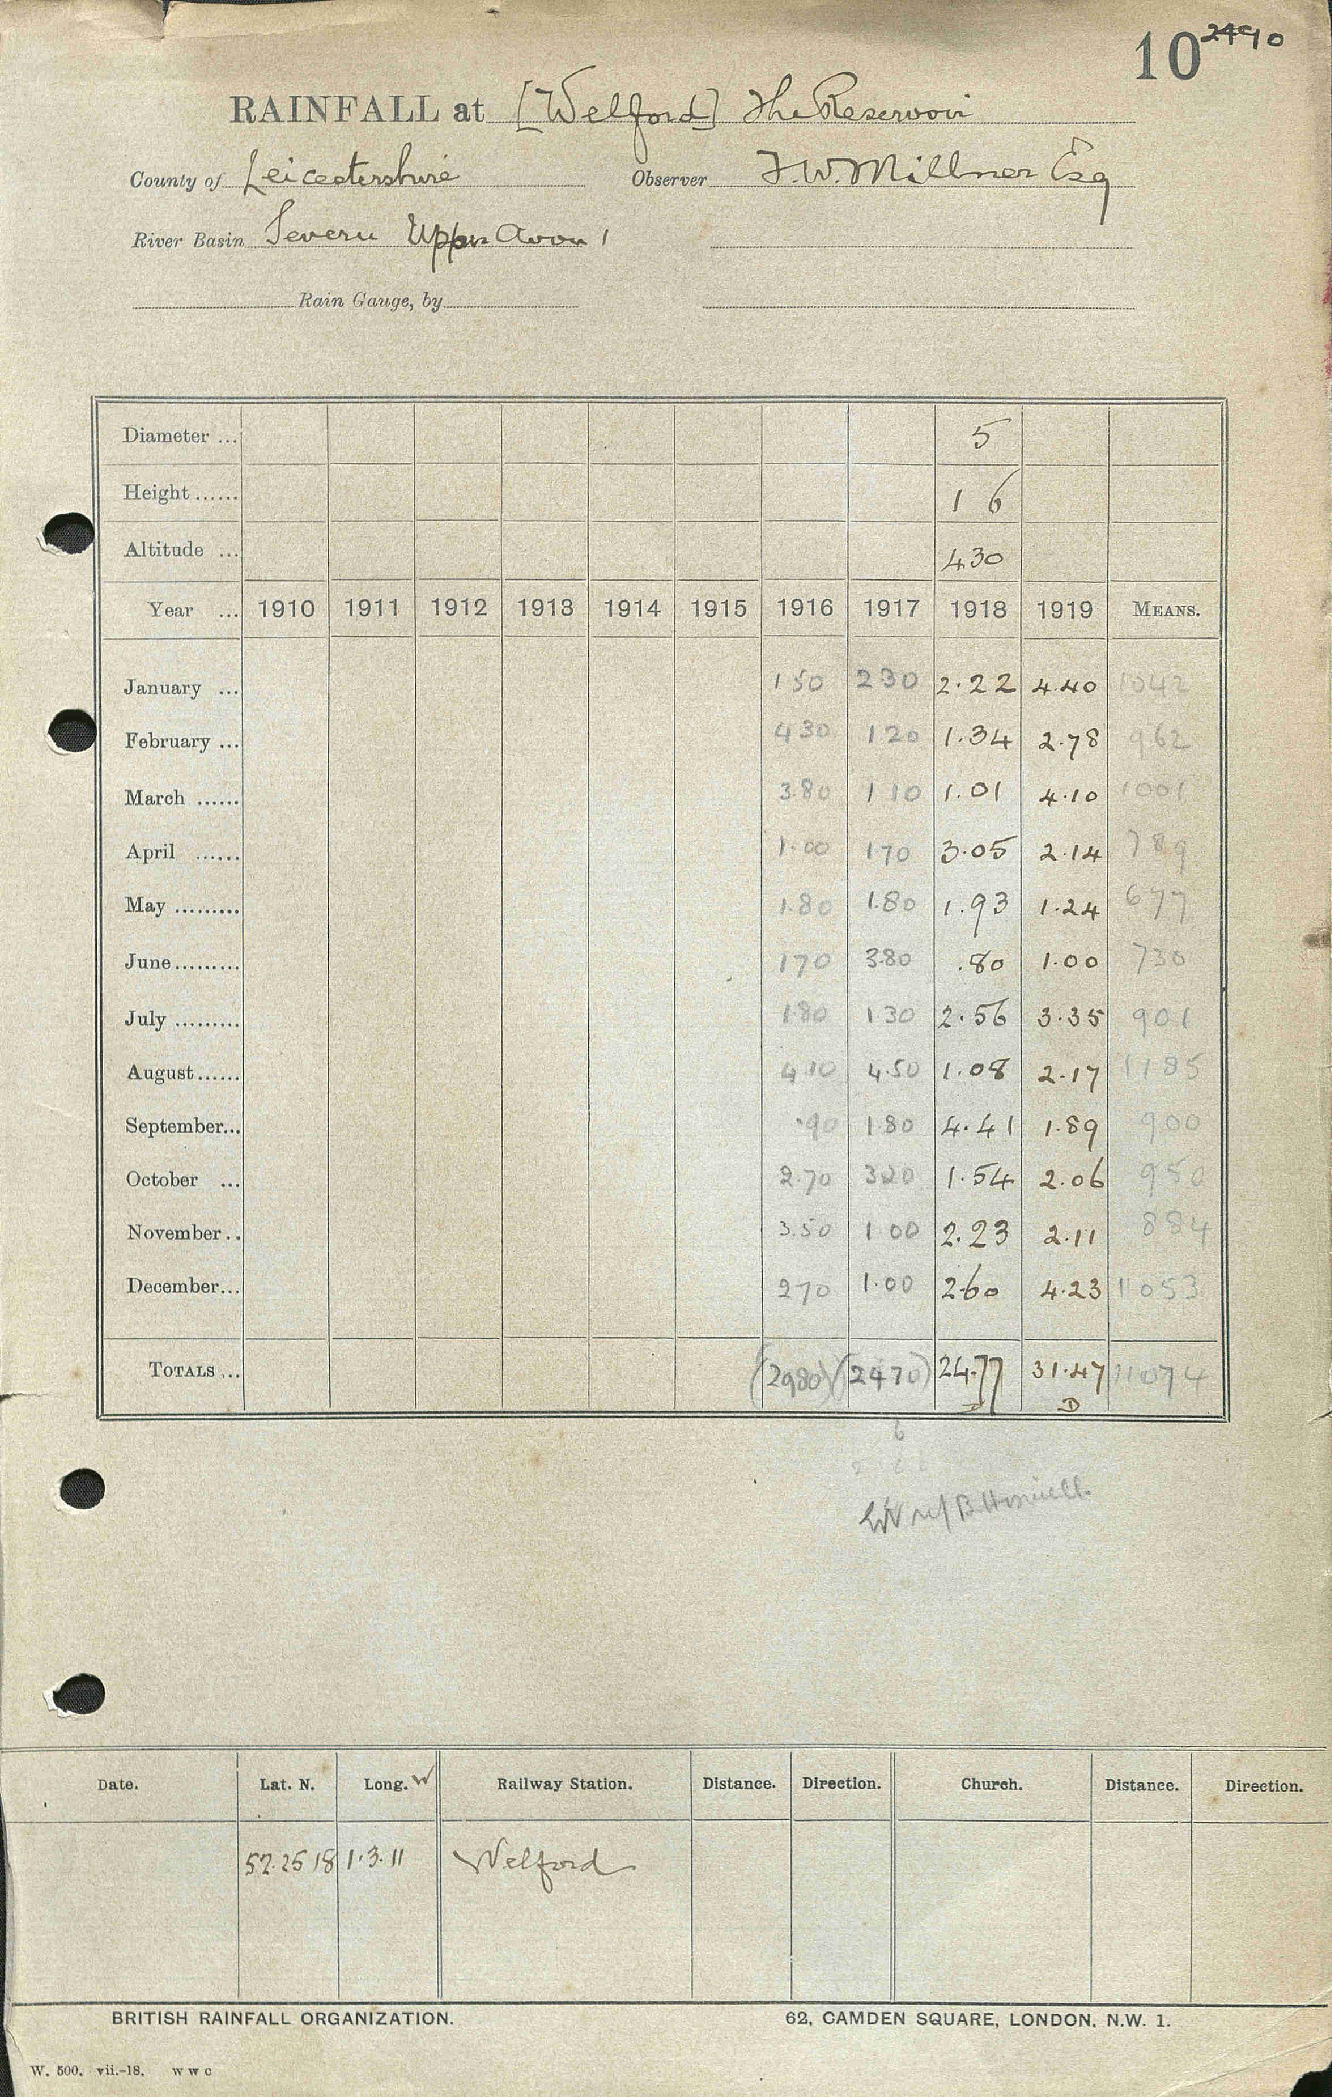 10 2490
RAINFALL at [Welford] The Reservoir
County of Leicestershire Observer F.W. Millner Esq
River Basin Severn Upper Avon 1
Rain Gauge, by
Diameter ... 5
Height ...... 1 6
Altitude ... 430
Year ... 1910 1911 1912 1913 1914 1915 1916 1917 1918 1919 MEANS.
January ... 150 230 2.22 4.40 1042
February ... 430 120 1.34 2.78 962
March ...... 380 110 1.01 4.10 1001
April ...... 1.00 170 3.05 2.14 789
May ......... 1.80 1.80 1.93 1.24 677
June......... 170 380 .80 1.00 730
July ......... 1.80 130 2.56 3.35 901
August...... 4.10 4.50 1.08 2.17 1185
September... .90 1.80 4.41 1.89 900
October ... 2.70 320 1.54 2.06 950
November.. 3.50 1 00 2.23 2.11 884
December... 270 1.00 2.60 4.23 1053
TOTALS ... (2980) (2470) 24.77 31.47 11074
D
6
Date. Lat. N. Long. W Railway Station. Distance. Direction. Church. Distance. Direction.
52.25 18 1.3.11 Welford
BRITISH RAINFALL ORGANIZATION. 62, CAMDEN SQUARE, LONDON, N.W. 1.
W. 500. vii.-18. w w c